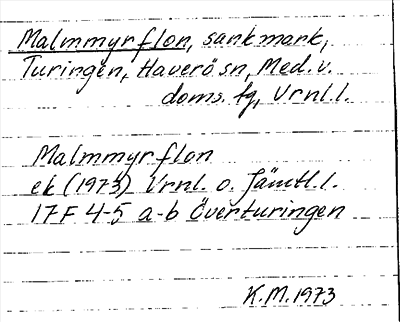 Malmmyrflon, sankmark,
Turingen, Haverösn, Med.v.
doms. tg, Vrnl.l.
Malmmyrflon
ek (1973) Vrnl. o. Jämtl.l.
17F 4-5 a-b Överturingen
K.M. 1973